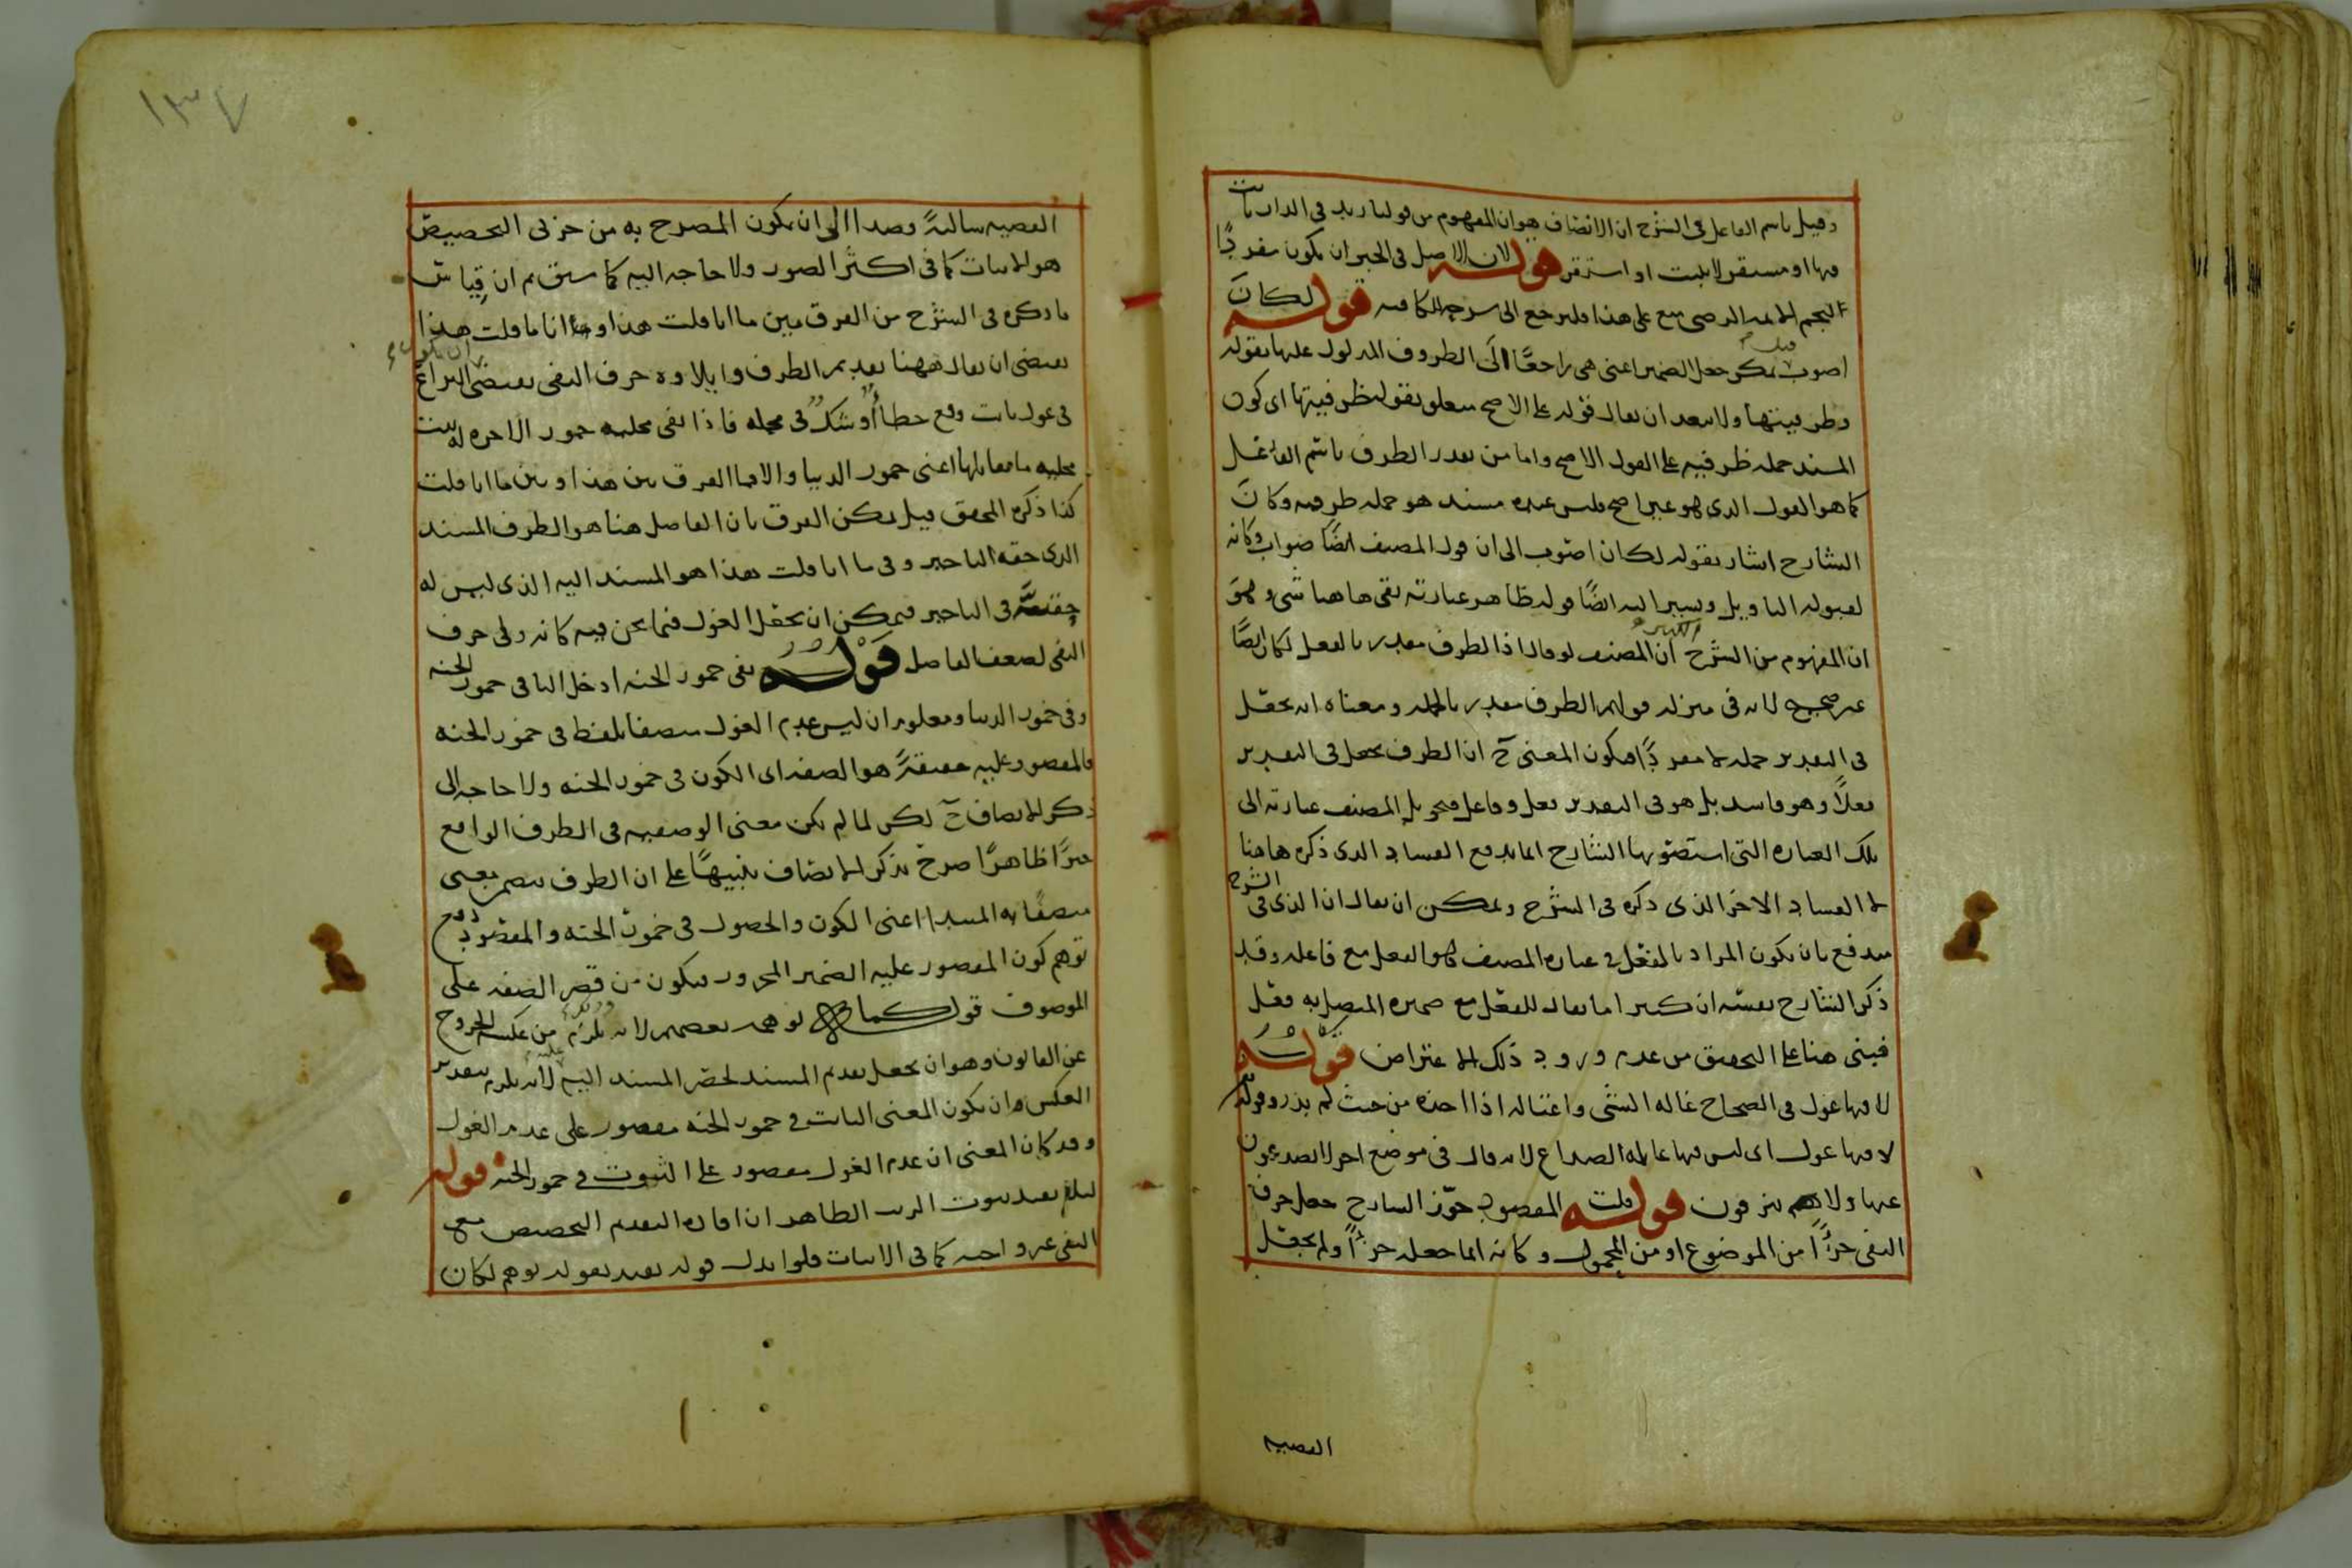 وقيل باسم الفاعل في الشرح ان الاتصاف هو ان المفهوم من قولنا زيد في الدار ثابت
فيها او مستقر لا يثبت او استقر قوله لان الاصل في الخبر ان يكون مفردًا
الرضي على هذا فليرجع الى شرحه للكافيه قوله لكان
اصوب يمكن جعل الضمير اعنى هى راجعًا الى الظروف المدلول عليها بقوله
وظرفيتها ولا يبعد ان يقال قوله على الاصح متعلق بقوله ظرفيتها اى كون
المسند جمله ظرفيه على القول الاصح واما من يقدر الظرف باسم الفاعل
كما هو القول الذى هو غير اصح فليس عنده مسند هو جمله ظرفيه وكان
الشارح اشار بقوله لكان اصوب الى ان قول المصنف ايضًا صواب وكانه
لقبوله التاويل ويشير اليه ايضًا قوله ظاهر عبارته بقى هاهنا شى وهو
ان المفهوم من الشرح ان المصنف لو قال اذ الظرف مقدر بالفعل لكان ايضًا
غير صحيح لانه فى منزله قولهم الظرف مقدر بالجمله ومعناه انه يجعل
فى التقدير جمله لا مفردًا فيكون المعنى ح ان الظرف يجعل فى التقدير
فعلًا وهو فاسد بل هو فى التقدير فعل وفاعل فتحويل المصنف عبارته الى
تلك العباره التى استصوبها الشارح انما يدفع الفساد الذى ذكره هاهنا
لا الفساد الاخر الذى ذكره فى الشرح ويمكن ان يقال ان الذى فى الشرح
يندفع بان يكون المراد بالفعل فى عباره المصنف هو الفعل مع فاعله وقد
ذكر الشارح نفسه ان كثيرا ما يقال للفعل مع ضميره المتصل به فعل
فبنى هنا على التحقيق من عدم ورود ذلك الاعتراض قوله
لا فيها غول فى الصحاح غاله الشى واغتاله اذا اخذه من حيث لم يدر وقوله
لا فيها غول اى ليس فيها غايله الصداع لانه قال فى موضع اخر لا يصدعون
عنها ولا ينزفون قوله قلت المقصود جوّز الشارح جعل حرف
النفى جزءًا من الموضوع او من المحمول وكانه انما جعله جزءًا ولم يجعل
القضيه
١٣٧
القضيه سالبةً قصدا الى ان يكون المصرح به من جزئى التخصيص
هو الاثبات كما فى اكثر الصور ولا حاجه اليه كما سبق ثم ان قياس
ما ذكره فى الشرح من الفرق بين ما انا قلت هذا وانا ما قلت هذا
يقتضى ان يقال ههنا تقديم الظرف وايلاوه حرف النفى يقتضى النزاع
فى غول ثابت وقع خطأ او شك فى محله فاذا نفى محليه خمور الاخره له يثبت
محليه ما يقابلها اعنى خمور الدنيا والا فما الفرق بين هذا وبين ما انا قلت
كذا ذكره المحقق قيل يمكن الفرق بان الفاصل هنا هو الظرف المسند
الذى حقه التاخير وفى ما انا قلت هذا هو المسند اليه الذى ليس له
حقيقةً فى التاخير فيمكن ان يجعل الغول فيما نحن فيه كانه ولى حرف
النفى لضعف الفاصل قوله نفى خمور الجنه ادخل النافى خمور الجنه
وفى خمور الدنيا ومعلوم ان ليس عدم الغول متصفا بلفظ فى خمور الجنه
فالمقصور عليه حقيقةً هو الصفه اى الكون فى خمور الجنه ولا حاجه الى
ذكر الاتصاف ح لكن لما لم يكن معنى الوصفيه فى الظرف الواقع
خبرًا ظاهرًا صرح بذكر الاتصاف تنبيهًا على ان الظرف يتضمن معنى
متصفًا به المبتدا اعنى الكون والحصول فى خمور الجنه والمقصود دفع
توهم كون المقصور عليه الضمير المجرور فيكون من قصر الصفه على
الموصوف قوله كما توهمه بعضهم لانه يلزم من عكسه الخروج
عن القانون وهو ان يجعل تقديم المسند لحصر المسند اليه لانه يلزم بتقدير
العكس ان يكون المعنى الثابت فى خمور الجنه مقصور على عدم الغول
وقد كان المعنى ان عدم الغول مقصور على الثبوت فى خمور الجنه قوله
لئلا يفيد ثبوت الريب الظاهر ان افاده التقديم التخصيص مع
النفى غير واجبه كما فى الاثبات فلو ابدل قوله يفيد بقوله يوهم لكان